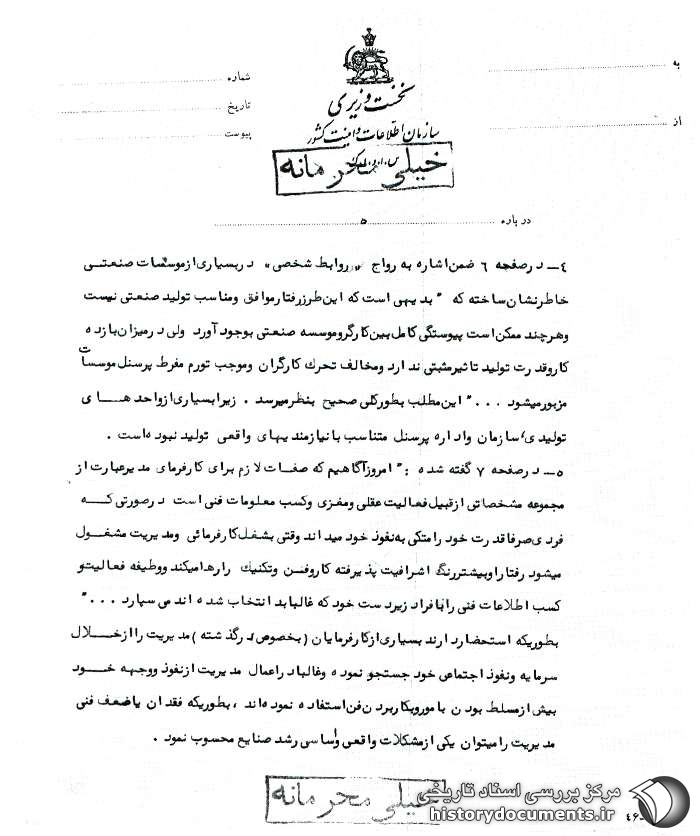 به
از
شماره
تاریخ
پیوست
نخست وزیری
سازمان اطلاعات و امنیت کشور
س.ا.و.ا.ک
خیلی محرمانه
درباره ۵
۴ــ در صفحه ۶ ضمن اشاره به رواج "روابط شخصی" در بسیاری از موسسات صنعتــی
خاطرنشان ساخته که " بدیهی است که این طرز رفتار موافق ومناسب تولید صنعتی نیست
وهرچند ممکن است پیوستگی کامل بین کارگر و موسسه صنعتی بوجود آورد ولی در میزان بازده
کار و قدرت تولید تاثیر مثبتی ندارد ومخالف تحرک کارگران وموجب تورم مفرط پرسنل موسسات
مزبور میشود . . ." این مطلب بطور کلی صحیح بنظر میرسد . زیرا بسیاری از واحد هــای
تولیدی، سازمان و اداره پرسنل متناسب با نیازمندیهای واقعی تولید نبوده است .
۵ــ در صفحه ۷ گفته شده : " امروز آگاهیم که صفات لازم برای کارفرمای مدیر عبارت از
مجموعه مشخصاتی از قبیل فعالیت عقلی ومغزی وکسب معلومات فنی است در صورتی کــه
فردی صرفا قدرت خود را متکی به نفوذ خود میداند وقتی بشغل کارفرمائی ومدیریت مشغــول
میشود رفتار او بیشتر رنگ اشرافیت پذیرفته کار وفــن وتکنیک را رها میکند ووظیفه فعالیت و
کسب اطلاعات فنی را با فراد زیردست خود که غالبا بد انتخاب شده اند می سپارد . . . "
بطوریکه استحضار دارند بسیاری از کارفرمایان ( بخصوص در گذشته ) مدیریت را از خــلال
سرمایه ونفوذ اجتماعی خود جستجو نموده وغالبا در اعمال مدیریت از نفوذ ووجهه خــود
بیش از مسلط بودن با مور وبکار بردن فن استفاده نموده اند ، بطوریکه فقدان یا ضعف فنی
مدیریت را میتوان یکی از مشکلات واقعی واساسی رشد صنایع محسوب نمود .
خیلی محرمانه
مرکز بررسی اسناد تاریخی
historydocuments.ir